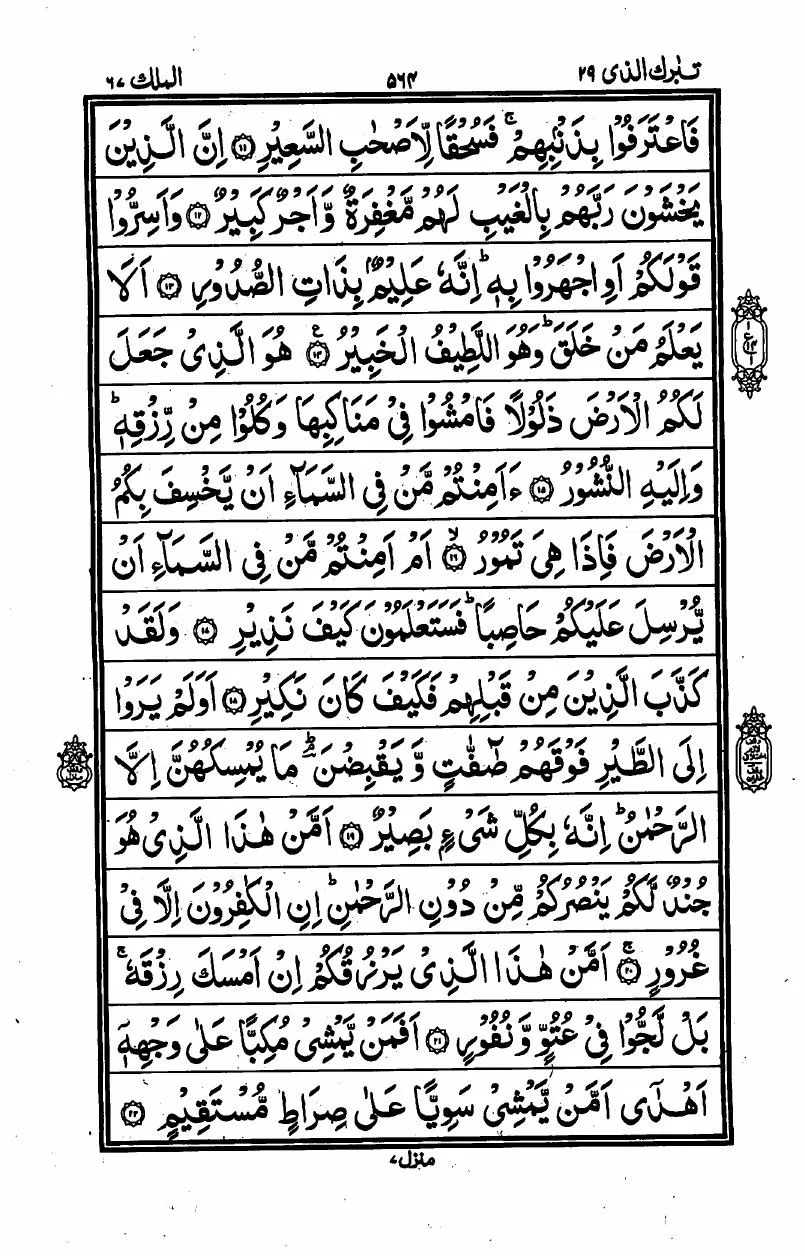 تبٰرك الذی ٢٩
٥٦٤
الملك ٦٧
فَاعْتَرَفُوْا بِذَنْۢبِهِمْ ۚ فَسُحْقًا لِّاَصْحٰبِ السَّعِیْرِ ۝۱۱ اِنَّ الَّذِیْنَ
یَخْشَوْنَ رَبَّهُمْ بِالْغَیْبِ لَهُمْ مَّغْفِرَةٌ وَّ اَجْرٌ كَبِیْرٌ ۝۱۲ وَ اَسِرُّوْا
قَوْلَكُمْ اَوِ اجْهَرُوْا بِهٖ ؕ اِنَّهٗ عَلِیْمٌۢ بِذَاتِ الصُّدُوْرِ ۝۱۳ اَلَا
یَعْلَمُ مَنْ خَلَقَ ؕ وَ هُوَ اللَّطِیْفُ الْخَبِیْرُ ۝۱۴ ع هُوَ الَّذِیْ جَعَلَ
لَكُمُ الْاَرْضَ ذَلُوْلًا فَامْشُوْا فِیْ مَنَاكِبِهَا وَ كُلُوْا مِنْ رِّزْقِهٖ ؕ
وَ اِلَیْهِ النُّشُوْرُ ۝۱۵ ءَاَمِنْتُمْ مَّنْ فِی السَّمَآءِ اَنْ یَّخْسِفَ بِكُمُ
الْاَرْضَ فَاِذَا هِیَ تَمُوْرُ ۝۱۶ ۙ اَمْ اَمِنْتُمْ مَّنْ فِی السَّمَآءِ اَنْ
یُّرْسِلَ عَلَیْكُمْ حَاصِبًا ؕ فَسَتَعْلَمُوْنَ كَیْفَ نَذِیْرِ ۝۱۷ وَ لَقَدْ
كَذَّبَ الَّذِیْنَ مِنْ قَبْلِهِمْ فَكَیْفَ كَانَ نَكِیْرِ ۝۱۸ اَوَ لَمْ یَرَوْا
اِلَی الطَّیْرِ فَوْقَهُمْ صٰٓفّٰتٍ وَّ یَقْبِضْنَ ؔۘؕ مَا یُمْسِكُهُنَّ اِلَّا
الرَّحْمٰنُ ؕ اِنَّهٗ بِكُلِّ شَیْءٍۭ بَصِیْرٌ ۝۱۹ اَمَّنْ هٰذَا الَّذِیْ هُوَ
جُنْدٌ لَّكُمْ یَنْصُرُكُمْ مِّنْ دُوْنِ الرَّحْمٰنِ ؕ اِنِ الْكٰفِرُوْنَ اِلَّا فِیْ
غُرُوْرٍ ۝۲۰ ۚ اَمَّنْ هٰذَا الَّذِیْ یَرْزُقُكُمْ اِنْ اَمْسَكَ رِزْقَهٗ ۚ
بَلْ لَّجُّوْا فِیْ عُتُوٍّ وَّ نُفُوْرٍ ۝۲۱ اَفَمَنْ یَّمْشِیْ مُكِبًّا عَلٰی وَجْهِهٖۤ
اَهْدٰۤی اَمَّنْ یَّمْشِیْ سَوِیًّا عَلٰی صِرَاطٍ مُّسْتَقِیْمٍ ۝۲۲
منزل ٧